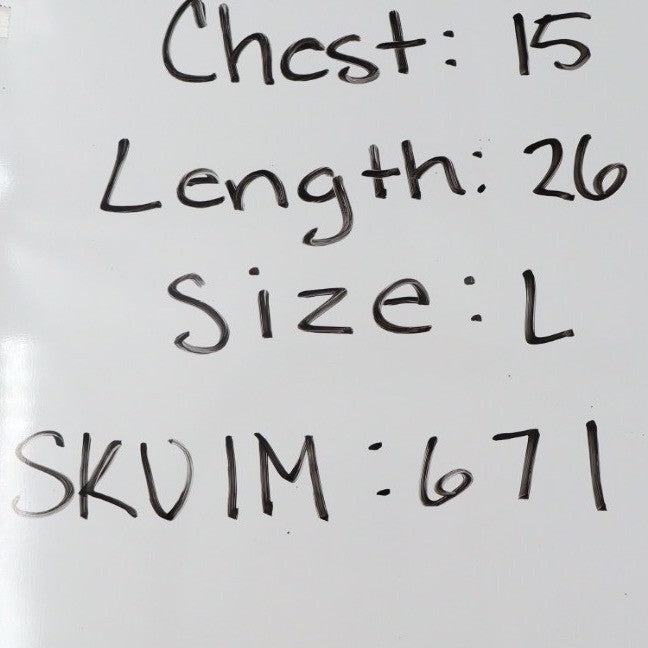 Chest: 15
Length: 26
Size: L
SKUIM: 671